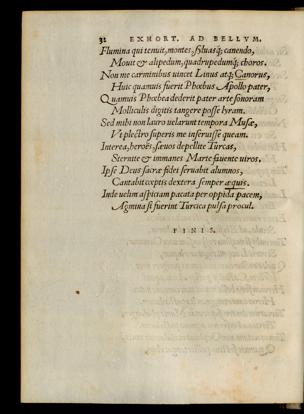 32 EXHORT. AD BELLVM.
Flumina qui tenuit, montes, syluasq; canendo,
Mouit & alipedum, quadrupedumq; choros.
Non me carminibus uincet Linus atq; Canorus,
Huic quamuis fuerit Phœbus Apollo pater,
Quamuis Phœbea dederit pater arte sonoram
Molliculis digitis tangere posse lyram.
Sed mihi non lauro uelarunt tempora Musæ,
Vt plectro superis me inseruisse queam.
Interea, heroes, sæuos depellite Turcas,
Sternite & immanes Marte fauente uiros.
Ipse Deus sacræ fidei seruabit alumnos,
Cantabit cœptis dextera semper æquis.
Inde uelim aspiciam pacata per oppida pacem,
Agmina si fuerint Turcica pulsa procul.
FINIS.